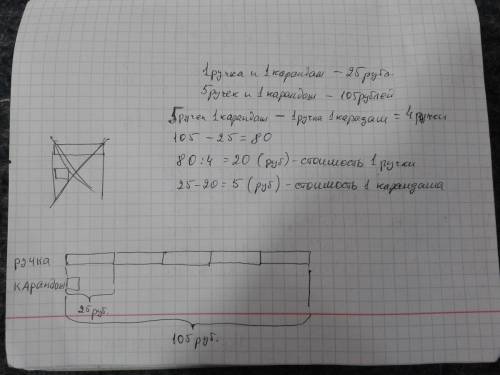 1 ручка и 1 карандаш – 25 руб.
5 ручек и 1 карандаш – 105 рублей
5 ручек 1 карандаш – 1 ручка 1 карадаш = 4 ручки
105 – 25 = 80
80 : 4 = 20 (руб) – стоимость 1 ручки
25 – 20 = 5 (руб) – стоимость 1 карандаша
ручка
карандаш
25 руб.
105 руб.